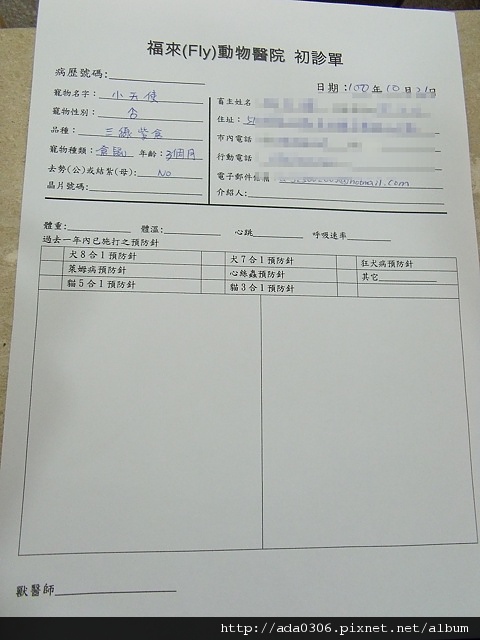 福來(Fly)動物醫院 初診單
病歷號碼:
日期:100年10月21日
寵物名字: 小天使
寵物性別:
品種: 三線
寵物種類: 倉鼠 年齡: 3個月
去勢(公)或結紮(母): No
晶片號碼:
畜主姓名
住址:
市內電話
行動電話
電子郵件 @hotmail.com
介紹人:
體重: 體溫: 心跳 呼吸速率
過去一年內已施打之預防針
犬8合1預防針 犬7合1預防針 狂犬病預防針
萊姆病預防針 心絲蟲預防針 其它
貓5合1預防針 貓3合1預防針
獸醫師
http://ada0306.pixnet.net/album